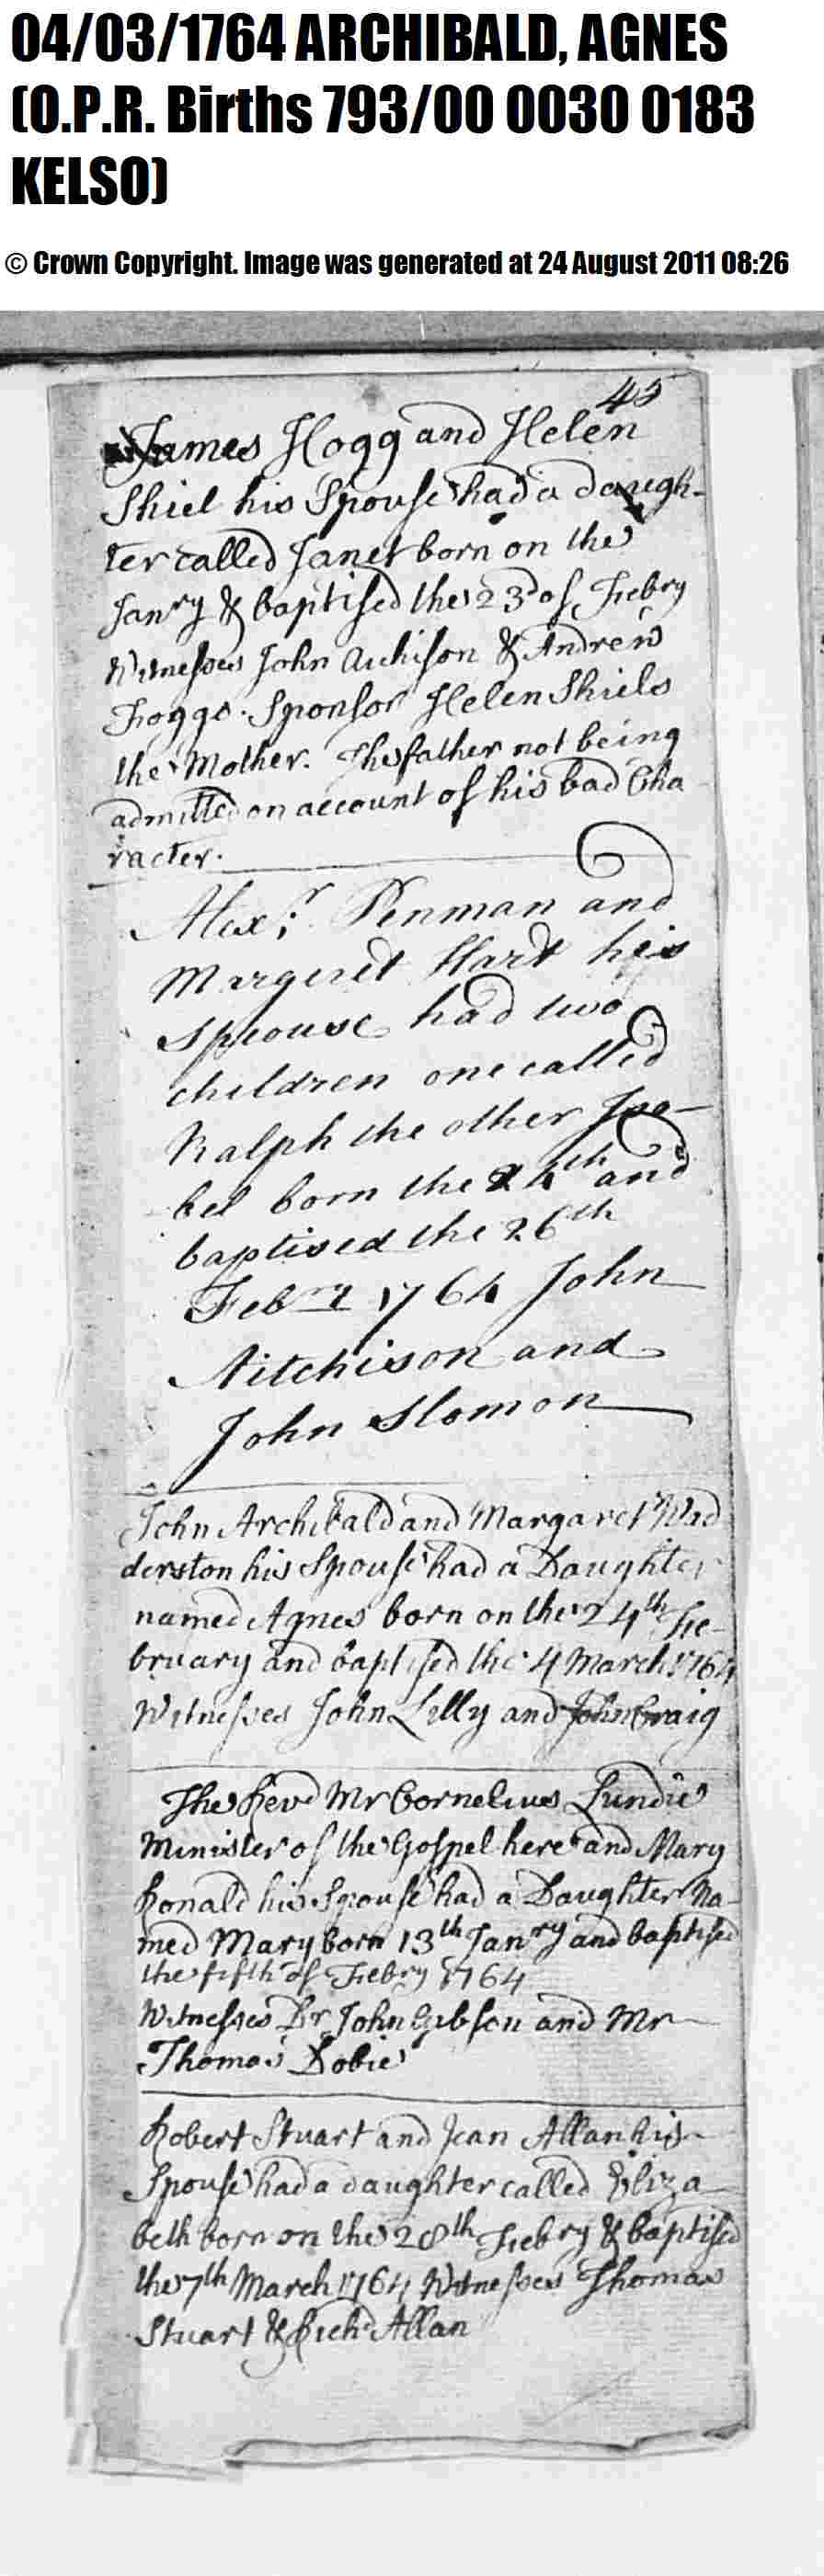 04/03/1764 ARCHIBALD, AGNES
(O.P.R. Births 793/00 0030 0183
KELSO)
© Crown Copyright. Image was generated at 24 August 2011 08:26
45
James Hogg and Helen
Shiel his Spouse had a daugh-
ter called Janet born on the
Janry & baptised the 23d of Febry
Witnesses John Aichison & Andrew
Foggo. Sponsor Helen Shiels
the Mother. The father not being
admitted on account of his bad Cha
racter.
Alexr. Penman and
Margeret Hart his
Spouse had two
children one called
Ralph the other Isa-
bel born the 24th and
baptised the 26th
Febry 1764 John
Aitchison and
John Slomon
John Archibald and Margaret Wad
derston his Spouse had a Daughter
named Agnes born on the 24th Fe-
bruary and baptised the 4 March 1764
Witnesses John Lilly and John Craig
The Revd Mr Cornelius Lundie
Minister of the Gospel here and Mary
Ronald his Spouse had a Daughter Na-
med Mary born 13th Janry and baptised
the fifth of Febry 1764
Witnesses Dr John Gibson and Mr
Thomas Dobie
Robert Stuart and Jean Allan his
Spouse had a daughter called Eliza
beth born on the 28th Febry & baptised
the 7th March 1764 Witnesses Thomas
Stuart & Richd Allan